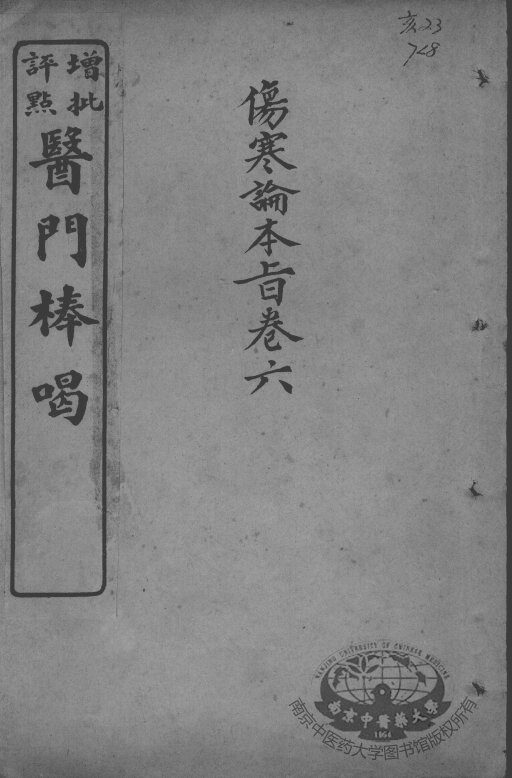 亥23
728
增批
評點
醫門棒喝
傷寒論本旨卷六
NANJING UNIVERSITY OF CHINESE MEDICINE
南京中醫藥大學
1954
南京中医药大学图书馆版权所有